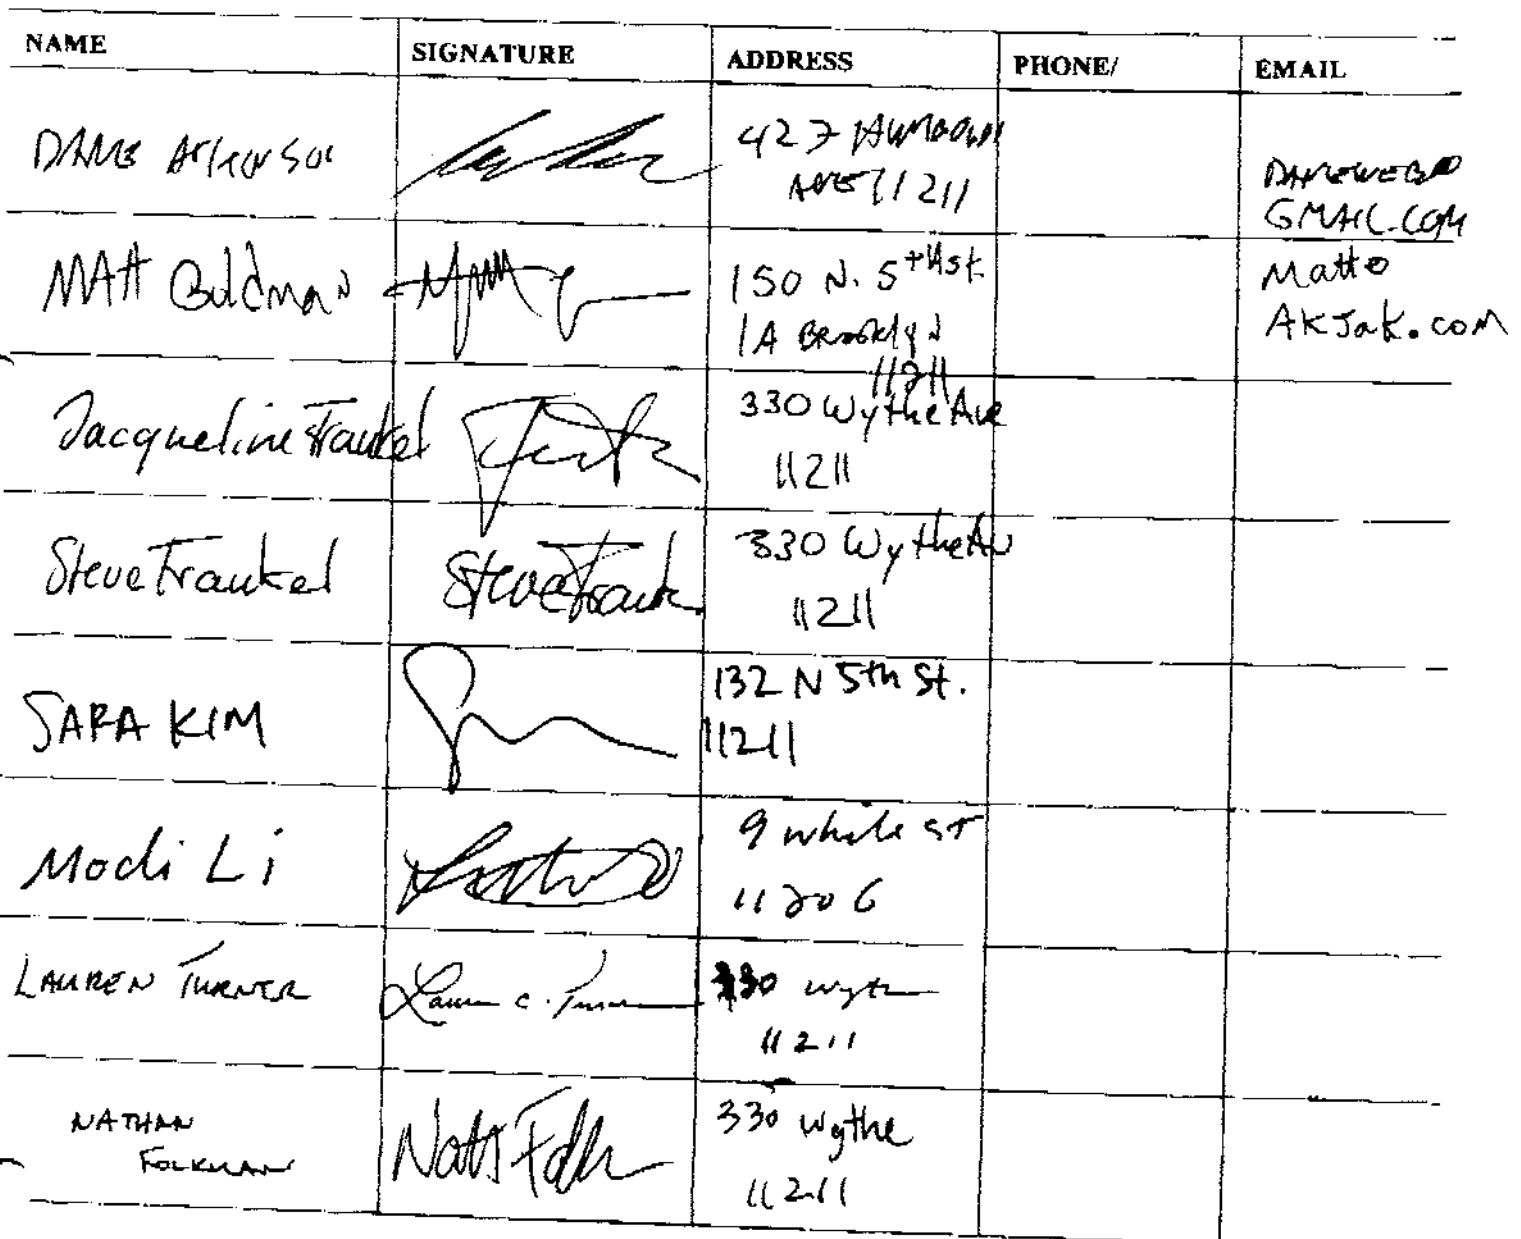 NAME SIGNATURE ADDRESS PHONE/ EMAIL
DANE ATKINSON 427
AVE 11211
GMAIL.COM
MATT Goldman 150 N. 5th st Matt@
1A Brooklyn AKJak.com
11211
Jacqueline Frankel 330 Wythe Ave
11211
Steve Frankel Steve Frank 330 Wythe Av
11211
SARA KIM 132 N 5th St.
11211
Modi Li 9 White ST
11206
LAUREN TURNER Lauren C. Turner 330 Wythe
11211
NATHAN 330 Wythe
FOLKMAN
11211